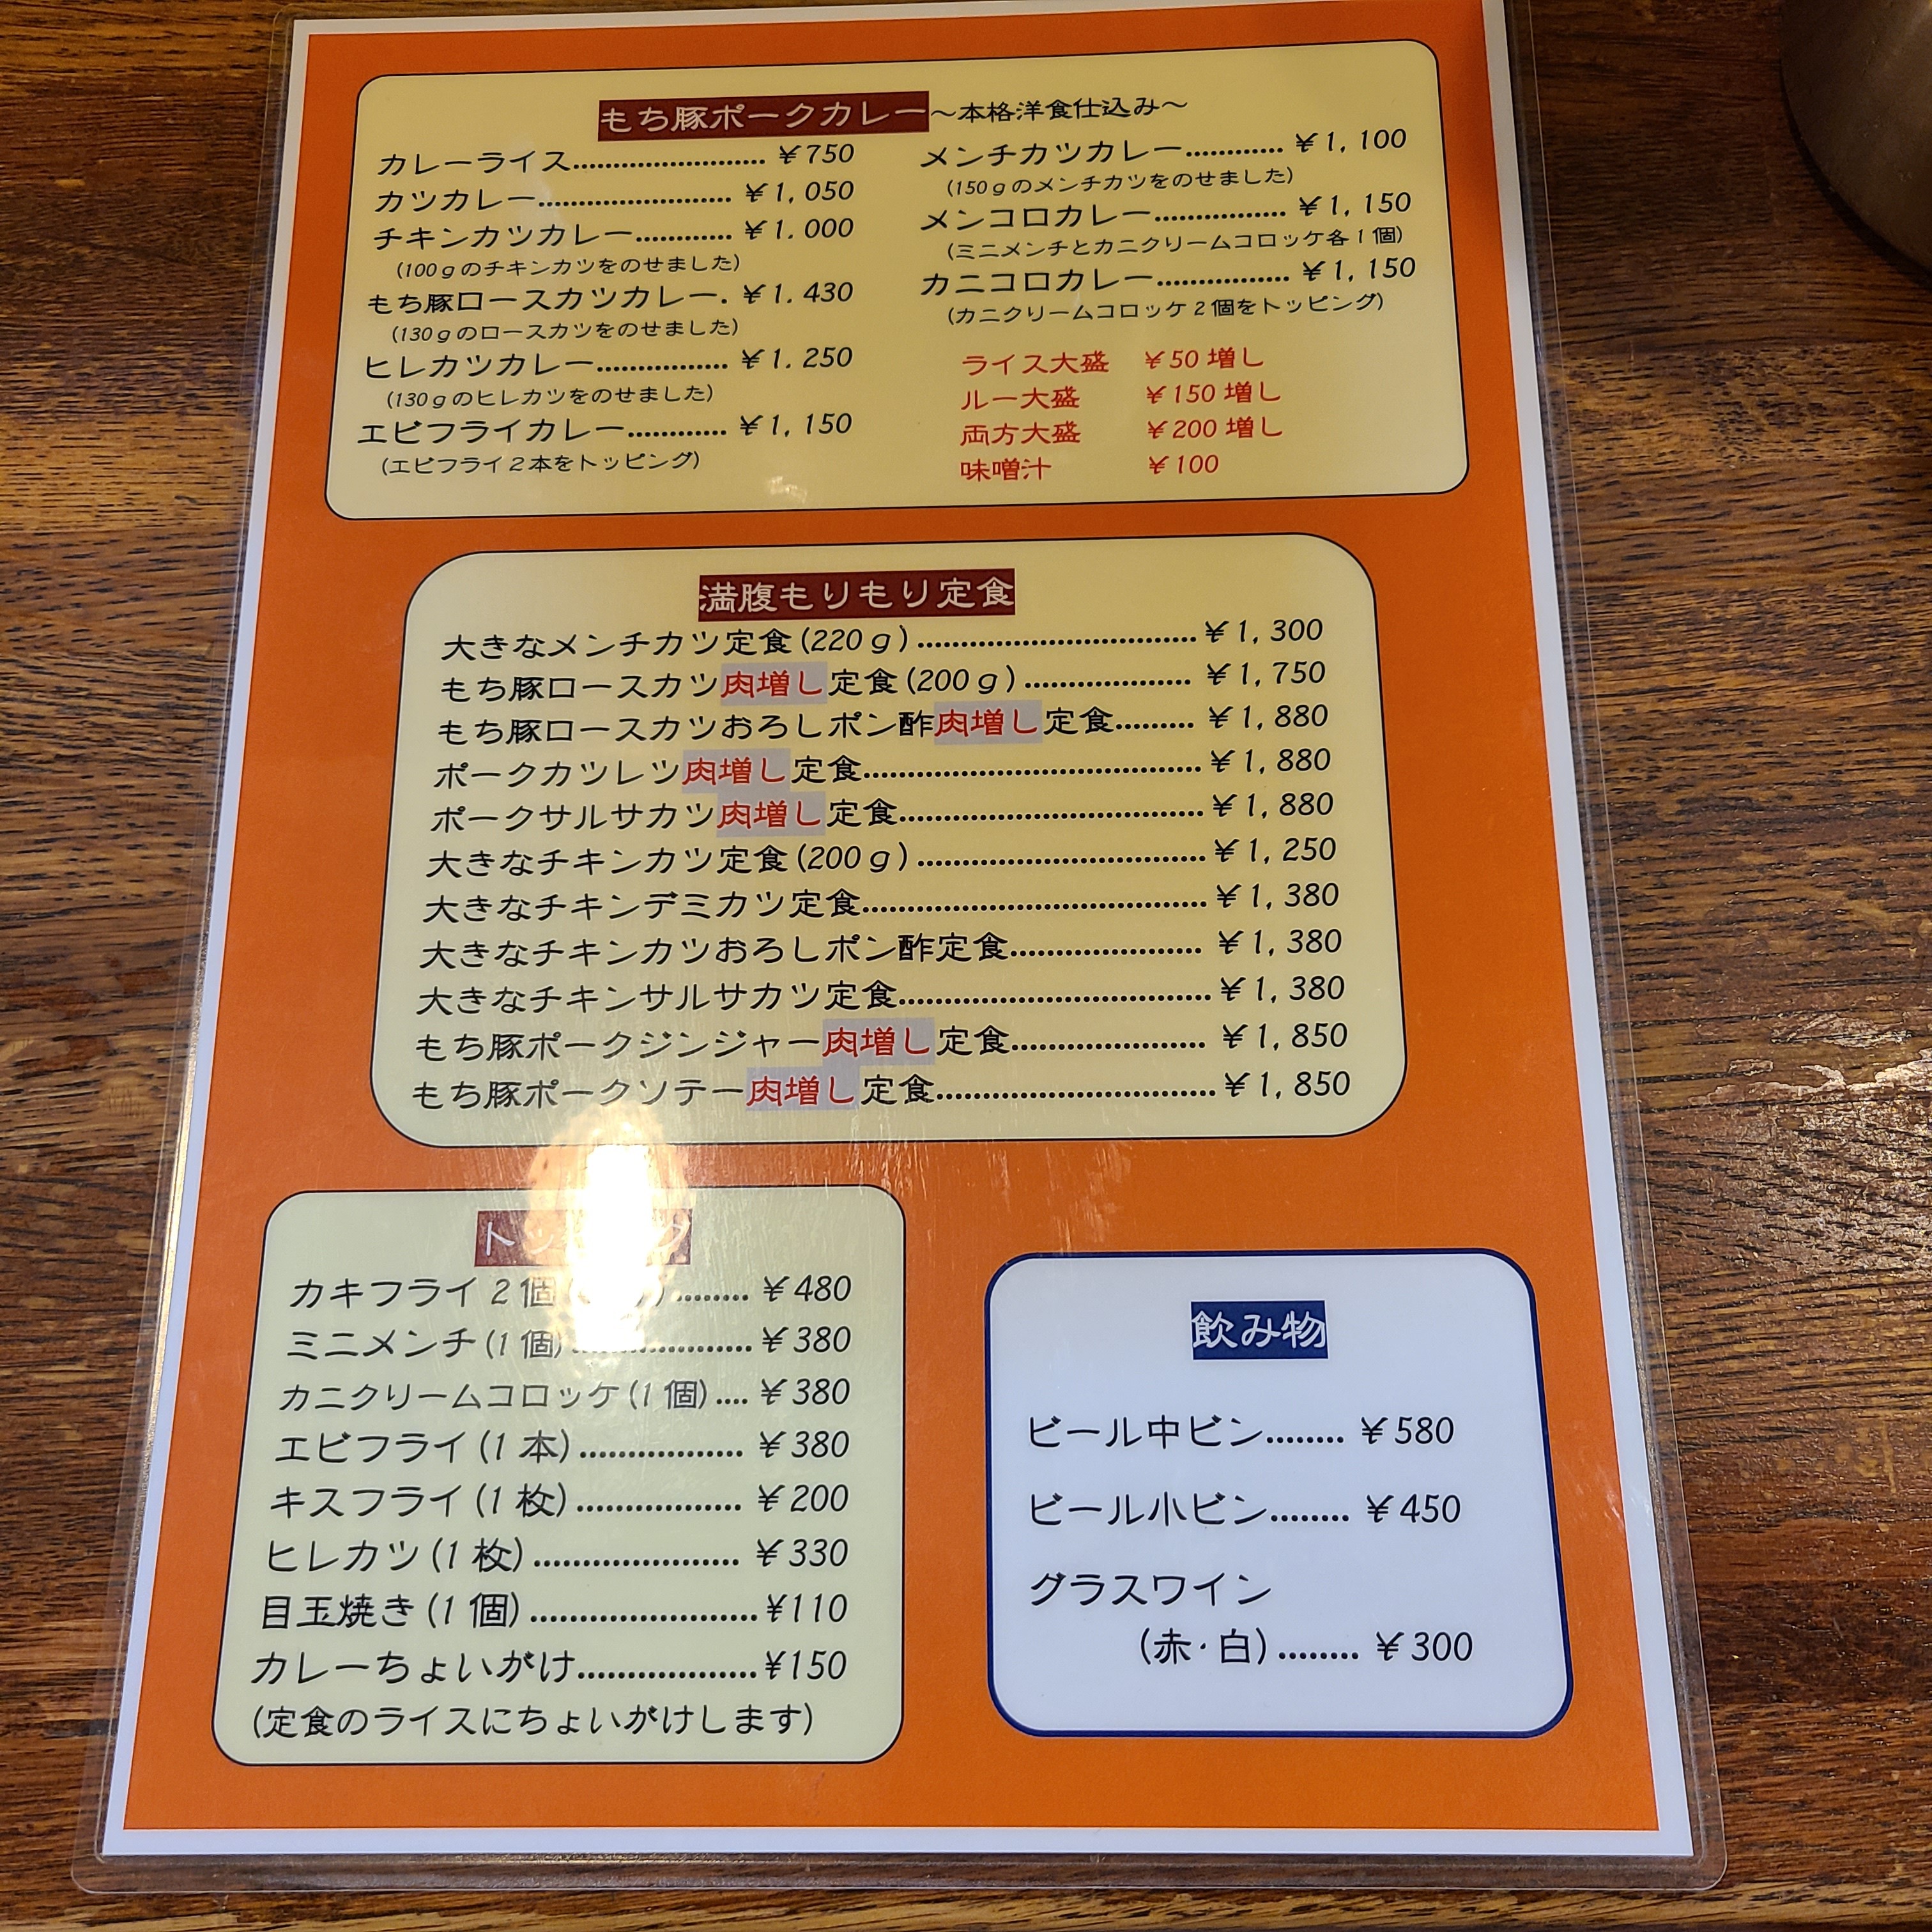 もち豚ポークカレー～本格洋食仕込み～
カレーライス........................ ¥750
カツカレー........................ ¥1,050
チキンカツカレー............ ¥1.000
(100gのチキンカツをのせました)
もち豚ロースカツカレー. ¥1.430
(130gのロースカツをのせました)
ヒレカツカレー................ ¥1.250
(130gのヒレカツをのせました)
エビフライカレー............ ¥1,150
(エビフライ2本をトッピング)
メンチカツカレー............ ¥1,100
(150gのメンチカツをのせました)
メンコロカレー................ ¥1,150
(ミニメンチとカニクリームコロッケ各1個)
カニコロカレー................ ¥1,150
(カニクリームコロッケ2個をトッピング)
ライス大盛 ¥50増し
ルー大盛 ¥150増し
両方大盛 ¥200増し
味噌汁 ¥100
満腹もりもり定食
大きなメンチカツ定食(220g)................................ ¥1,300
もち豚ロースカツ肉増し定食(200g)................... ¥1,750
もち豚ロースカツおろしポン酢肉増し定食......... ¥1,880
ポークカツレツ肉増し定食...................................... ¥1,880
ポークサルサカツ肉増し定食.................................. ¥1,880
大きなチキンカツ定食(200g)................................ ¥1,250
大きなチキンデミカツ定食...................................... ¥1,380
大きなチキンカツおろしポン酢定食...................... ¥1,380
大きなチキンサルサカツ定食.................................. ¥1,380
もち豚ポークジンジャー肉増し定食...................... ¥1,850
もち豚ポークソテー肉増し定食.............................. ¥1,850
カキフライ2個 ........ ¥480
ミニメンチ(1個).................... ¥380
カニクリームコロッケ(1個).... ¥380
エビフライ(1本)................. ¥380
キスフライ(1枚)................. ¥200
ヒレカツ(1枚)..................... ¥330
目玉焼き(1個)........................¥110
カレーちょいがけ...................¥150
(定食のライスにちょいがけします)
飲み物
ビール中ビン........ ¥580
ビール小ビン........ ¥450
グラスワイン
(赤·白)........ ¥300